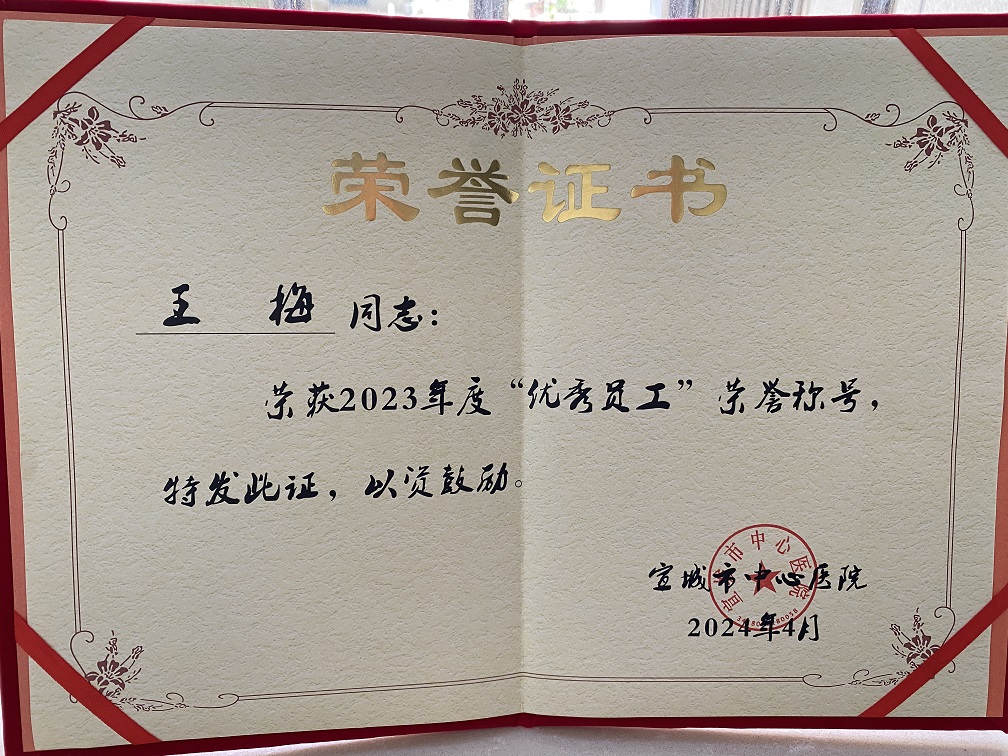 荣誉证书
王 梅 同志：
荣获2023年度“优秀员工”荣誉称号，
特发此证，以资鼓励。
宣城市中心医院
2024年4月